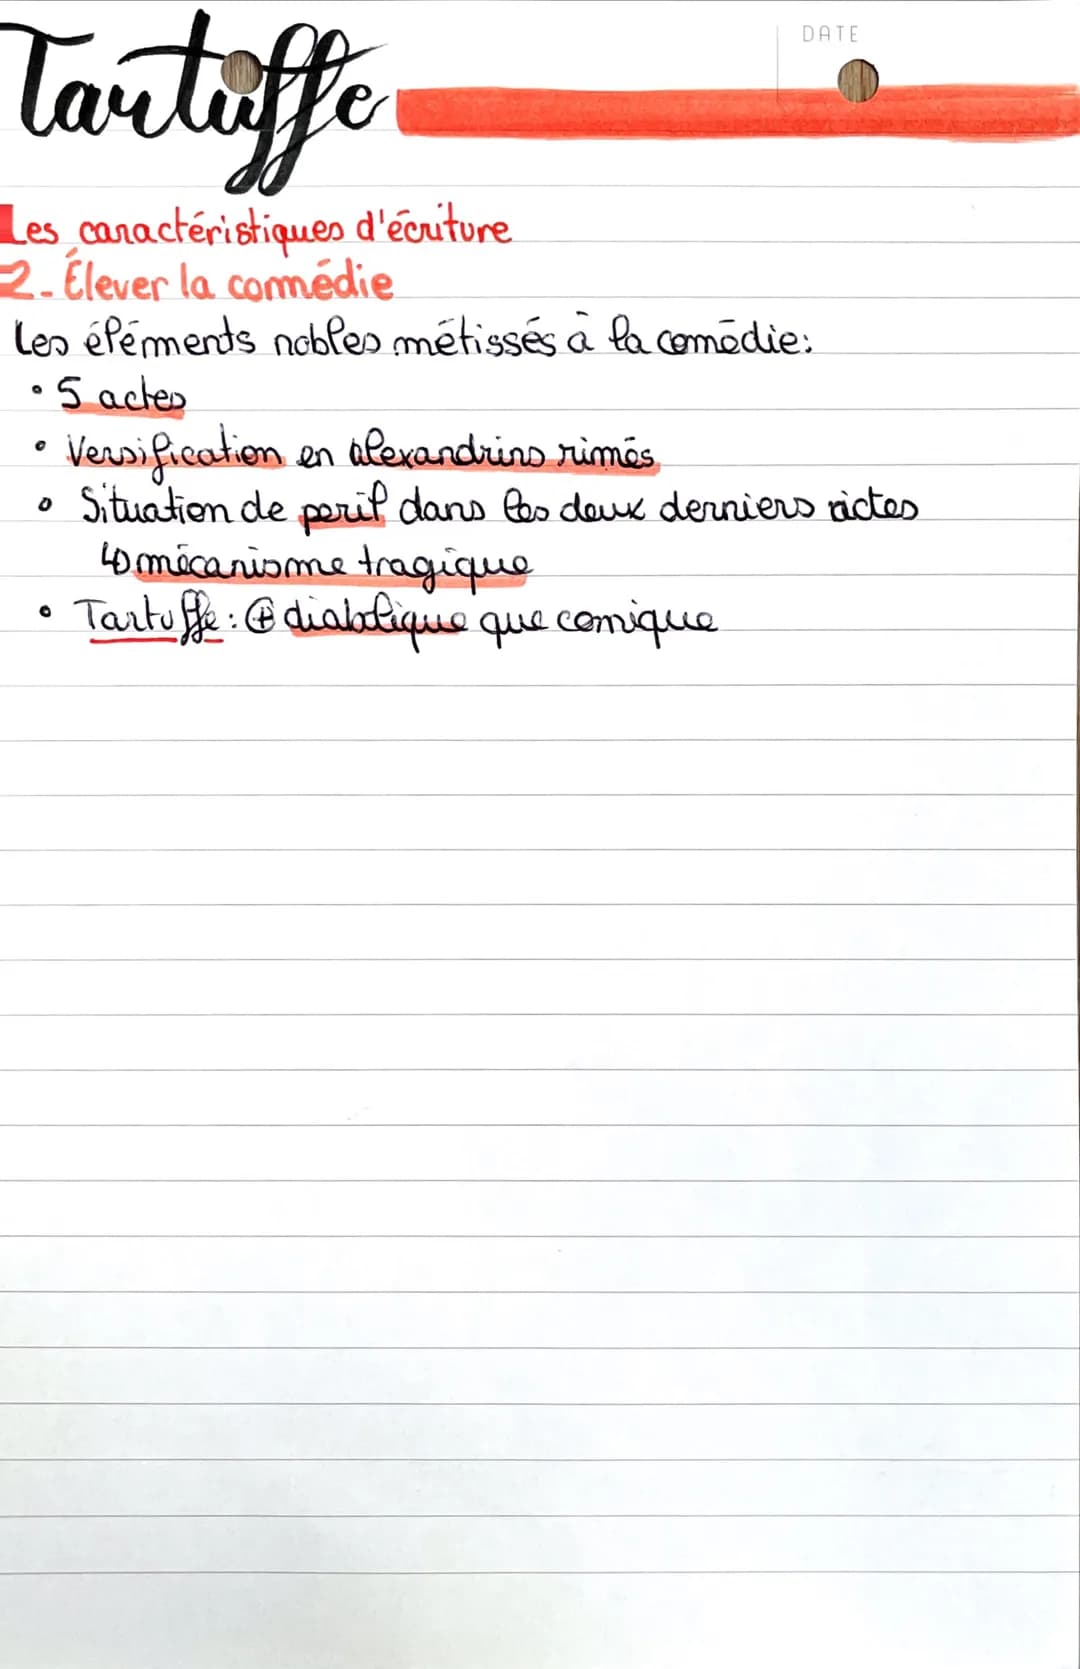 Tartuffe
DATE
Les caractéristiques d'écriture
2- Élever la comédie
Les éléments nobles métissés à la comédie:
• 5 actes
• Versification en alexandrins rimés
• Situation de peril dans les deux derniers actes
↳ mécanisme tragique
• Tartuffe: ⊕ diabolique que comique